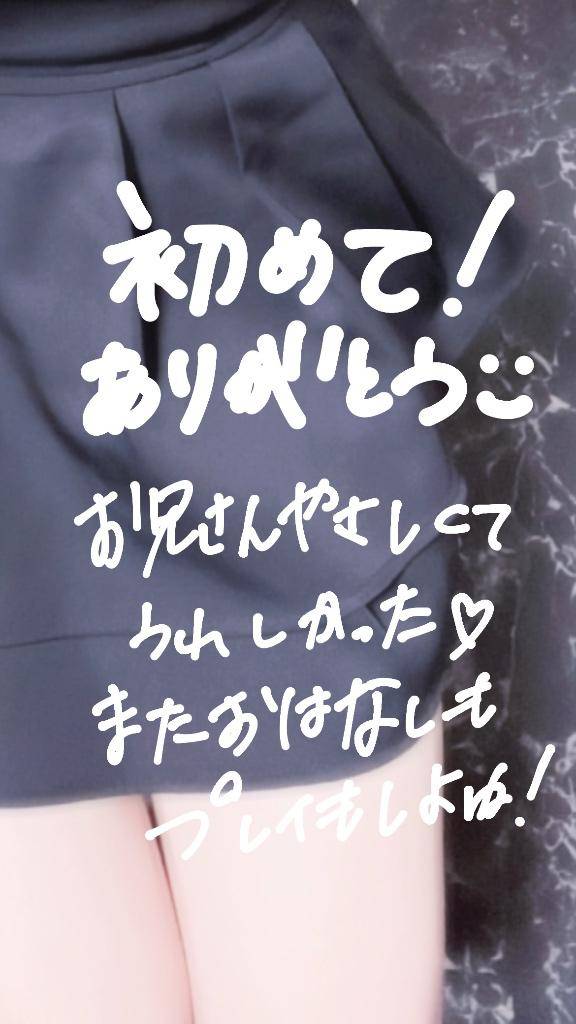 初めて!
ありがとう
お兄さんやさしくて
うれしかった♡
またおはなしも
プレイもしよゆ!